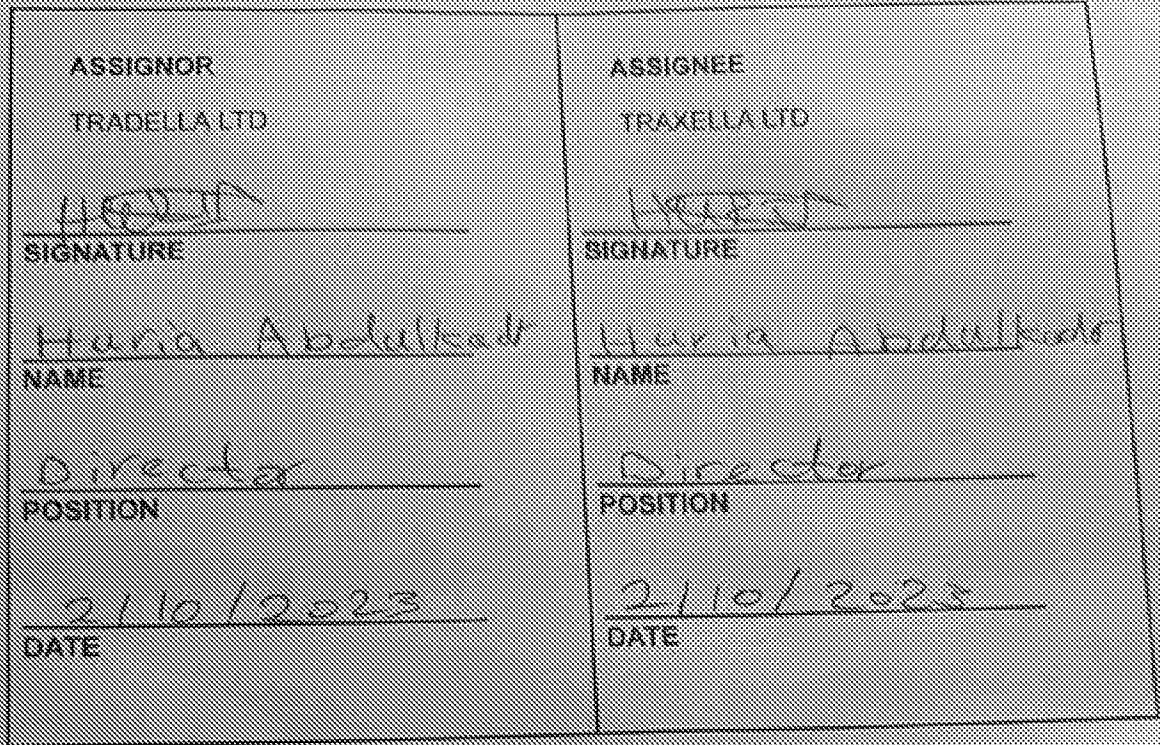 ASSIGNOR
TRADELLA LTD
SIGNATURE
Huria Abdulkadr
NAME
Director
POSITION
2/10/2023
DATE
ASSIGNEE
TRAXELLA LTD
SIGNATURE
Huria Abdulkadr
NAME
Director
POSITION
2/10/2023
DATE